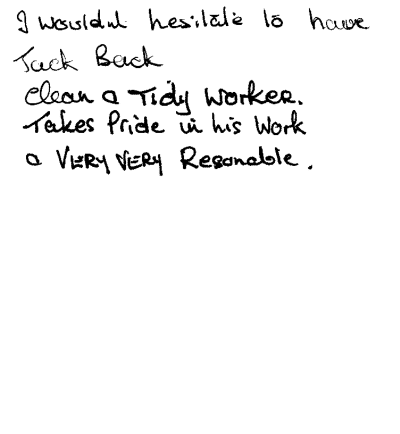 I wouldnt hesitate to have
Jack Back
Clean a Tidy Worker.
Takes Pride in his Work
a VERY VERY Resonable.